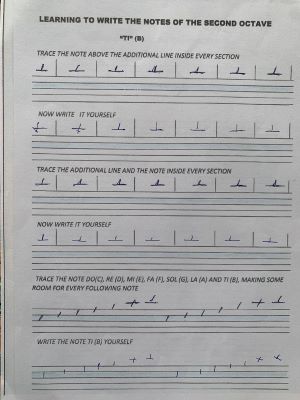 LEARNING TO WRITE THE NOTES OF THE SECOND OCTAVE
"TI" (B)
TRACE THE NOTE ABOVE THE ADDITIONAL LINE INSIDE EVERY SECTION
NOW WRITE IT YOURSELF
TRACE THE ADDITIONAL LINE AND THE NOTE INSIDE EVERY SECTION
NOW WRITE IT YOURSELF
TRACE THE NOTE DO(C), RE (D), MI (E), FA (F), SOL (G), LA (A) AND TI (B), MAKING SOME
ROOM FOR EVERY FOLLOWING NOTE
WRITE THE NOTE TI (B) YOURSELF